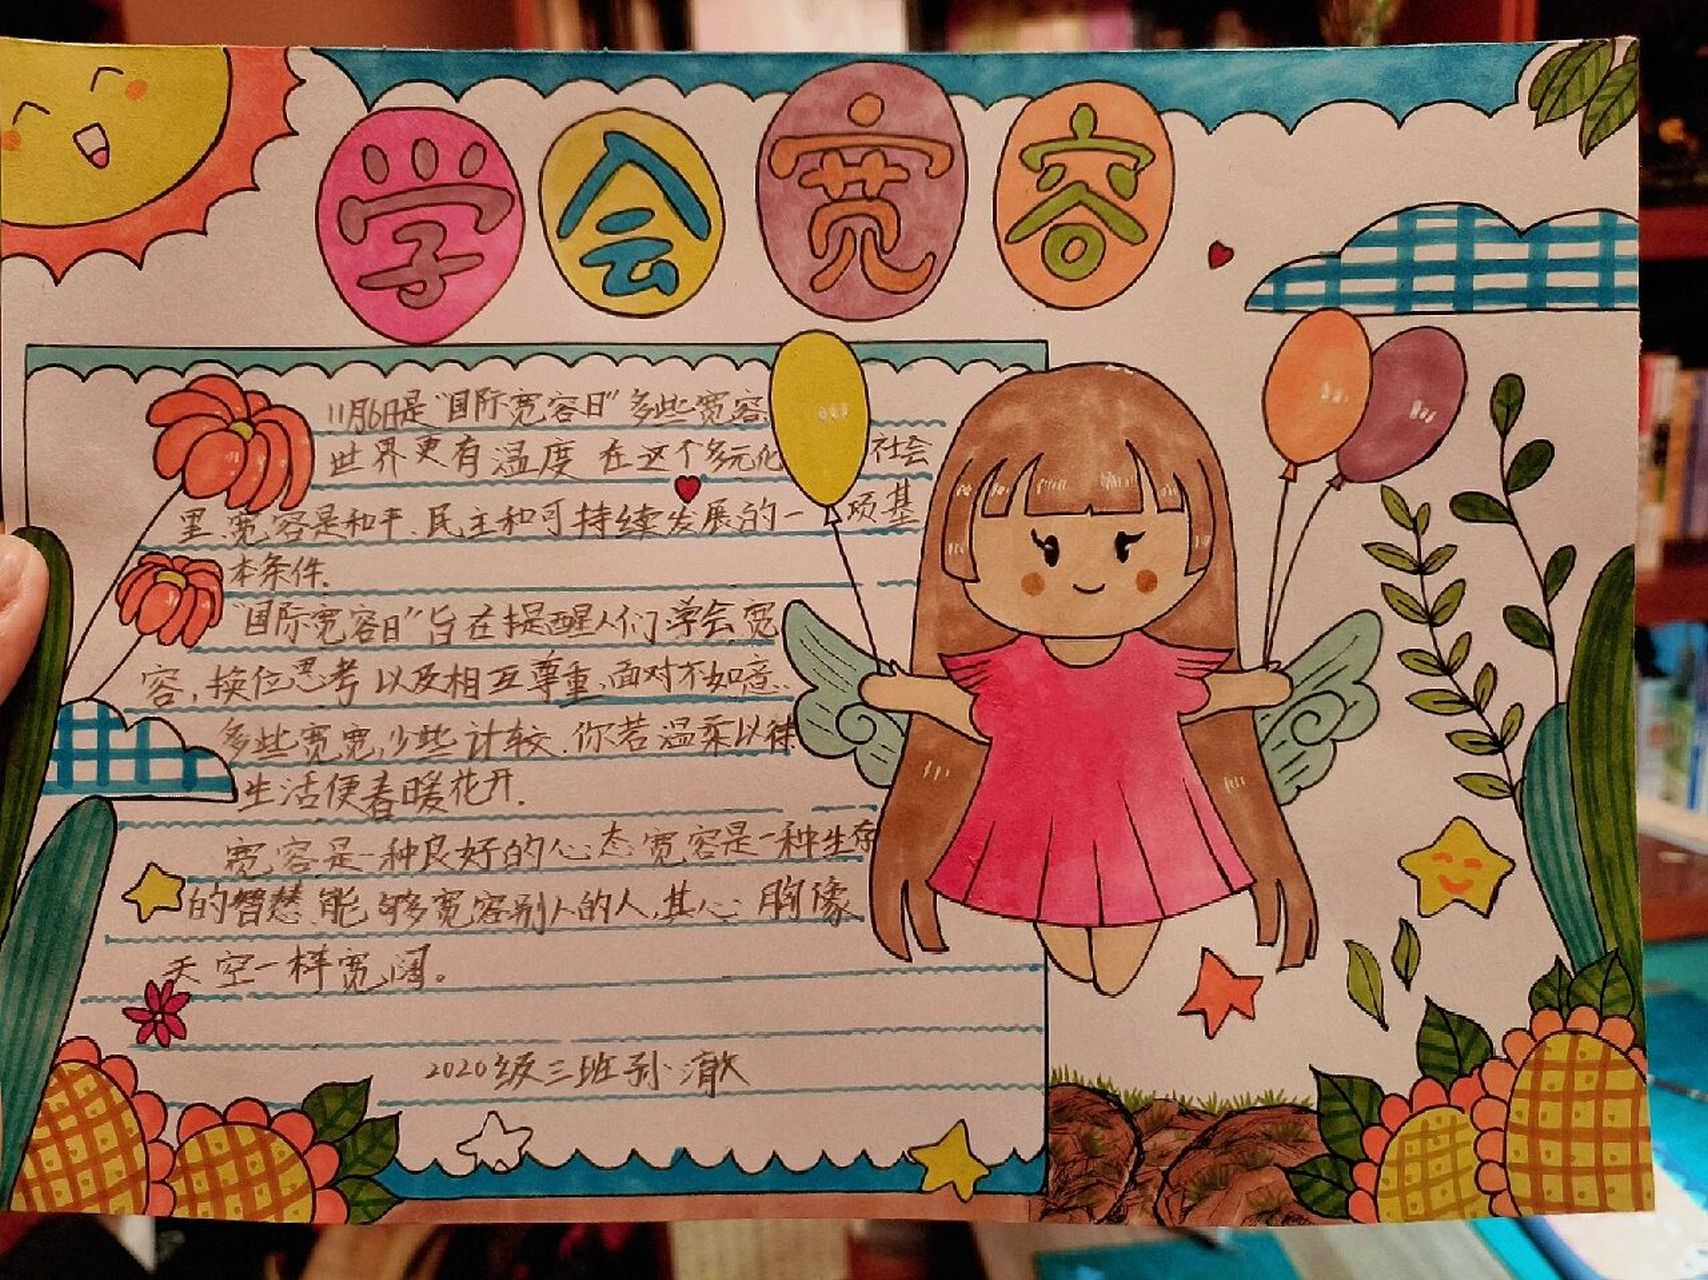 学会宽容
11月6日是"国际宽容日"多些宽容
世界更有温度 在这个多元化社会
里、宽容是和平、民主和可持续发展的一项基
本条件.
"国际宽容日"旨在提醒人们学会宽
容,换位思考以及相互尊重、面对不如意、
多些宽宽,少些计较.你若温柔以待
生活便春暖花开.
宽容是一种良好的心态宽容是一种生存
的智慧、能够宽容别人的人,其心胸像
天空一样宽阔。
2020级三班孙